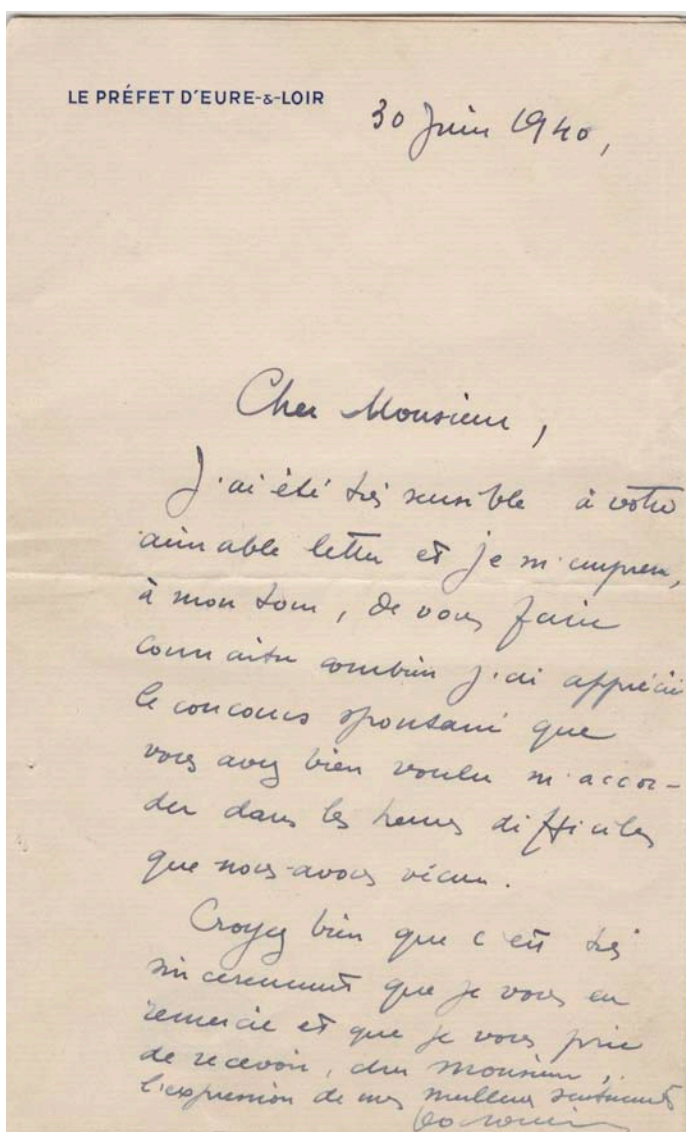 LE PRÉFET D'EURE-&-LOIR
30 Juin 1940,
Cher Monsieur,
J'ai été très sensible à votre
aimable lettre et je m'empresse,
à mon tour, de vous faire
connaître combien j'ai apprécié
le concours spontané que
vous avez bien voulu m'accor-
der dans les heures difficiles
que nous avons vécues.
Croyez bien que c'est très
sincèrement que je vous en
remercie et que je vous prie
de recevoir, cher Monsieur,
l'expression de mes meilleurs sentiments